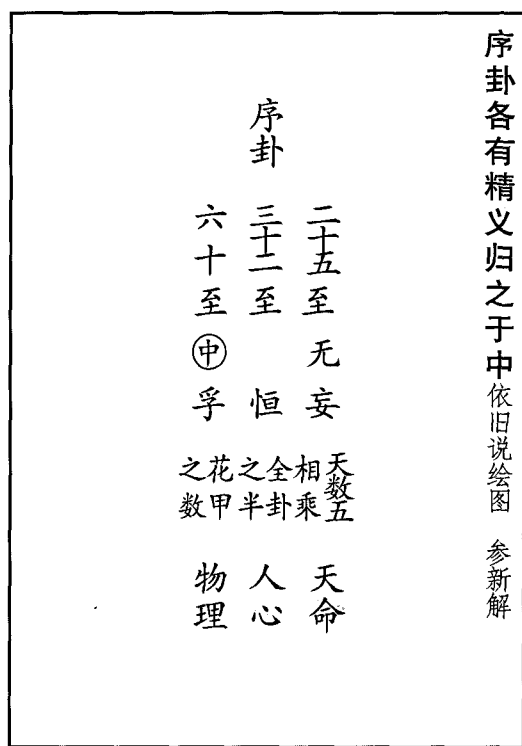 序卦各有精义归之于中依旧说绘图 参新解
二十五至无妄 天数五相乘 天命
序卦 三十二至恒 全卦之半 人心
六十至中孚 花甲之数 物理